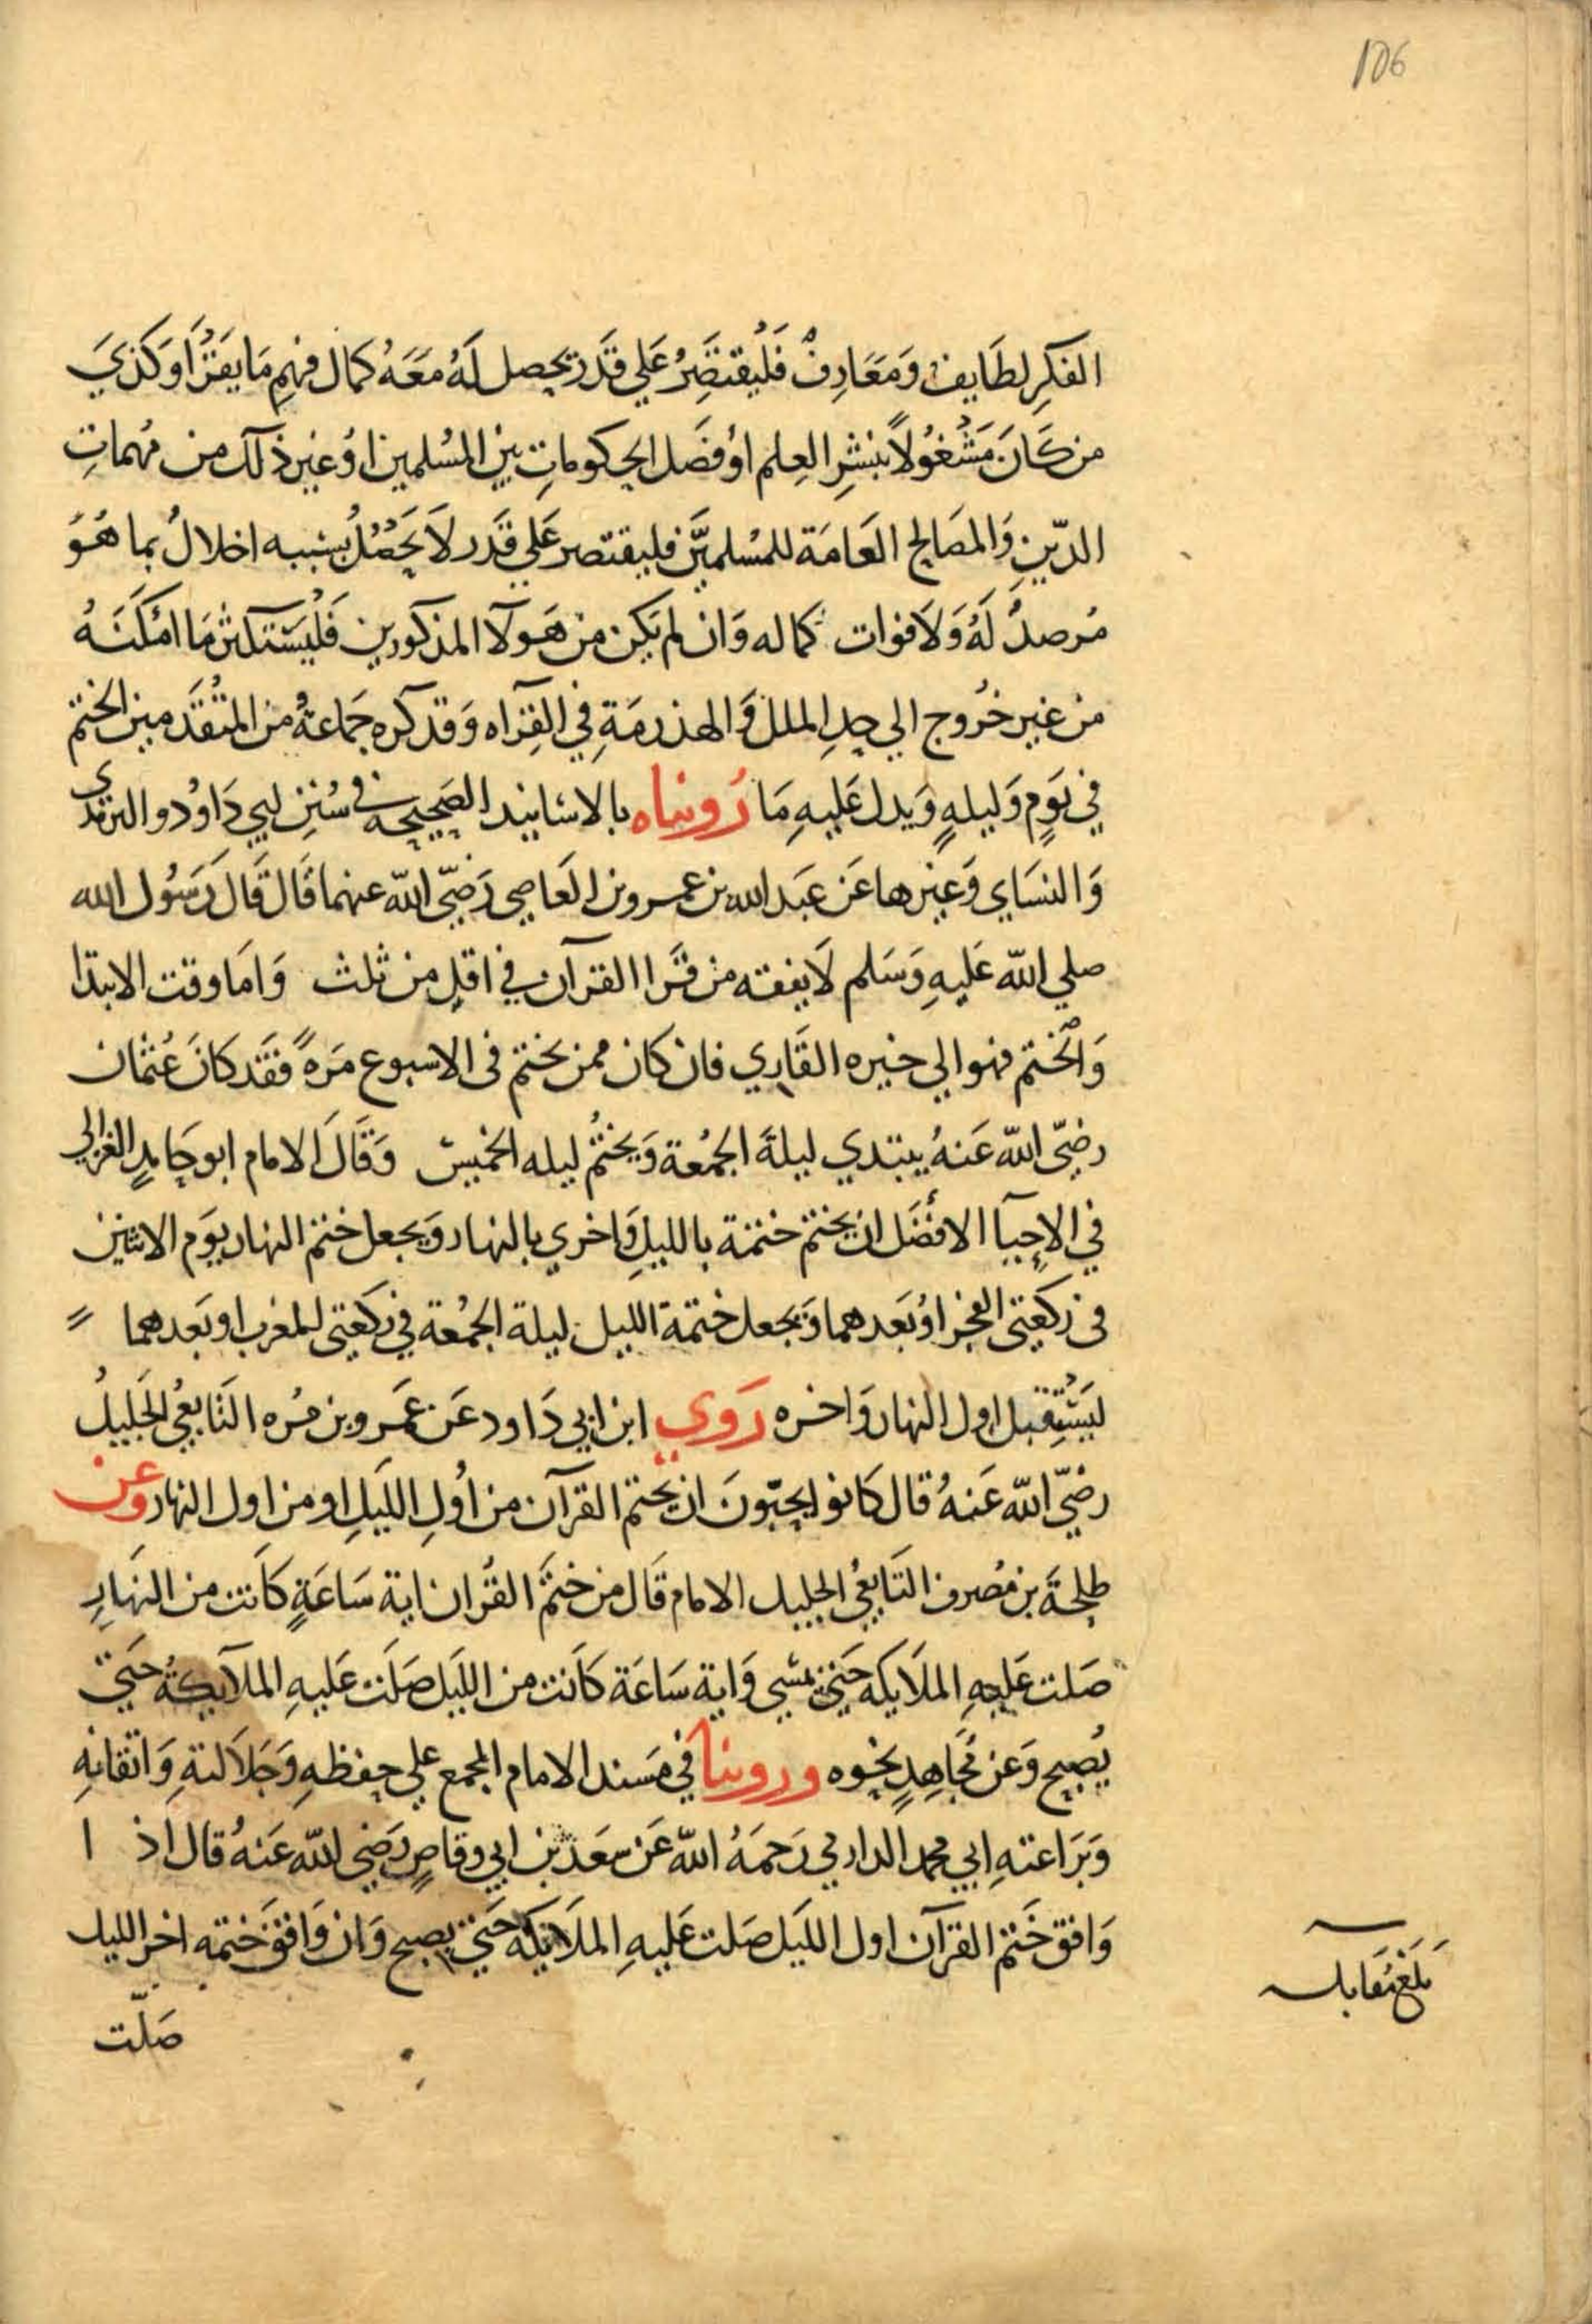 106
الفكرِ لطَايف وَمَعَارِفُ فَلْيقتَصِرُ عَلي قَدَر يحصل لَهُ مَعَهُ كمال فهمِ مَا يقرَأ وكذيَ
من كَانَ مَشْغُولاً بنشرِ العِلم اوْ فصَل الحكوماتِ بين المسُلمين اوْ غير ذلك من مهماتِ
الدّينِ وَالمصَالح العَامَة للمسُلميَّن فليقتصر عَلي قَدَر لاَ يَحْصُلُ بسَببه اخلالُ بما هُوَ
مُرصدُ لَهُ وَلاَ فوات كماله وَان لم يَكن من هَولآ المذكورين فَلْيسَتكثر مَا امْكنَهُ
من غير خرُوج الي حدِ الملل وَالهذرمَةِ في القِرَاه وَقد كره جَماعةُ من المتُقَدمين الختم
في يَومٍ وَليلهٍ وَيدل عَليهِ مَا رَويناه بالاسَانيد الصَحيحَه في سُنن لبي دَاوُد والترمذي
وَالنسَاي وَغيرها عَن عَبَد الله بن عمرو بن العَاصي رَضيّ الله عنهما قَال قَال رَسُول الله
صلي الله عَليهِ وَسَلم لاَ يفقه من قرَا القرآن في اقلِ من ثلث وَامَا وقت الابتدا
وَالختم فهو الي خيره القَاري فان كان ممن يختم في الاسبوع مَرهً فَقَد كانَ عُثمان
رضيّ الله عَنهُ يبتدي ليلةَ الجمُعة وَيختُم ليله الخميسَ وَقَالَ الامام ابو حَامدٍ الغزالي
في الاِحيآ الافضَل ان يختم ختمة بالليلِ وَاخري بالنهار وَيجعل ختم النهار يوَم الاثنين
في رَكعَتي الفجر اوْ بَعدهما وَيجعل ختمة الليل ليلة الجمُعة في ركعَتي المغرب او بَعدهما
ليَسْتقبل اول النهار وَاخره رَوي ابن ابي دَاود عَن عَمرو بن مُره التَابعُي الجَليلُ
رضيّ الله عَنهُ قال كَانو ايحبّونَ ان يختم القرآن من اوُلِ الليَلِ او من اول النهار وعن
طلحَةَ بن مُصرف التَابعُي الجليل الامام قَال من ختَم القُران اية سَاعَةٍ كانت من النهَارِ
صَلت عَليهِ الملاَيكه حَتي يمسَي وَاية سَاعَة كانت من الليَل صَلَت عَليهِ الملآيكةُ حَتي
يُصبح وَعَن مُجَاهِدٍ نحوه وروينا في مَسند الامام المجمع علي حِفظهِ وَجَلاَلتهِ وَاتقانهِ
وَبَرَاعتهِ ابي محمد الدارلي رَحمَهُ الله عَن سَعَد بن ابي وقاصٍ رَضي الله عَنهُ قال اذ ا
وَافق خَتم القرآن اول الليَل صَلت عَليهِ الملاَيكه حَتي يصبح وَان وَافق خَتمه اخر الليل
صَلّت
بَلَغَ مُقَابله